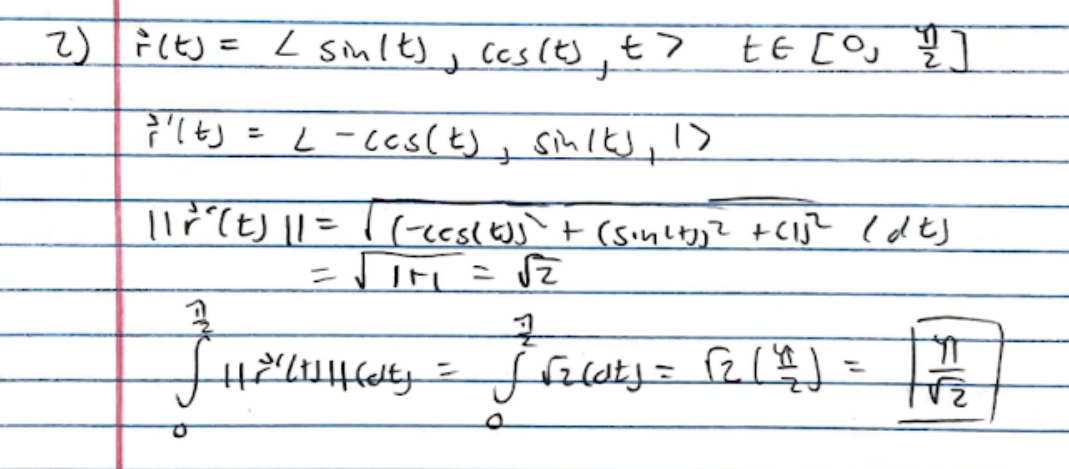 2) r⃗(t) = < sin(t), cos(t), t > t ∈ [0, π/2]
r⃗'(t) = < -cos(t), sin(t), 1 >
||r⃗'(t)|| = √((-cos(t))² + (sin(t))² + (1)²) (dt)
= √(1+1) = √2
∫₀^(π/2) ||r⃗'(t)|| (dt) = ∫₀^(π/2) √2 (dt) = √2 (π/2) = π/√2